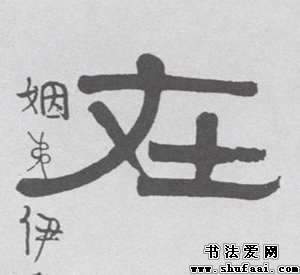 在
姻弟伊
书法爱网
www.shufaai.com